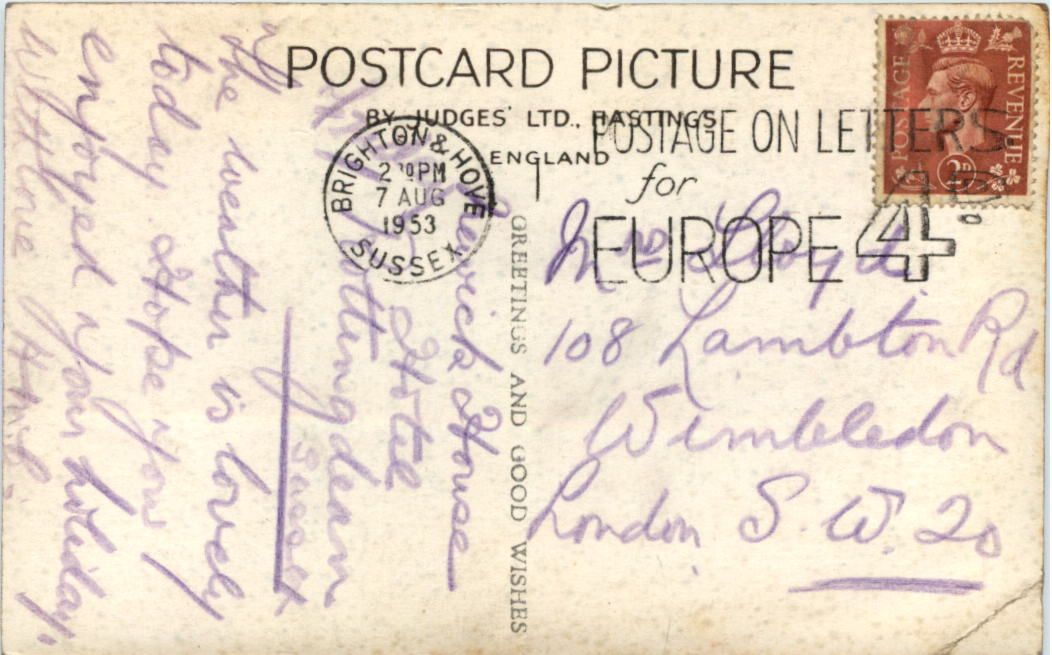 POSTCARD PICTURE
BY JUDGES' LTD., HASTINGS,
ENGLAND
POSTAGE ON LETTERS
for
EUROPE 4D.
BRIGHTON & HOVE
PM
7 AUG
1953
SUSSEX
POSTAGE
REVENUE
2D
GREETINGS AND GOOD WISHES
Mrs Lloyd
108 Lambton Rd
Wimbledon
London S.W.20
House
Hotel
Rottingdean
Sussex
The weather is lovely
today. Hope you
enjoyed your holiday.
With love